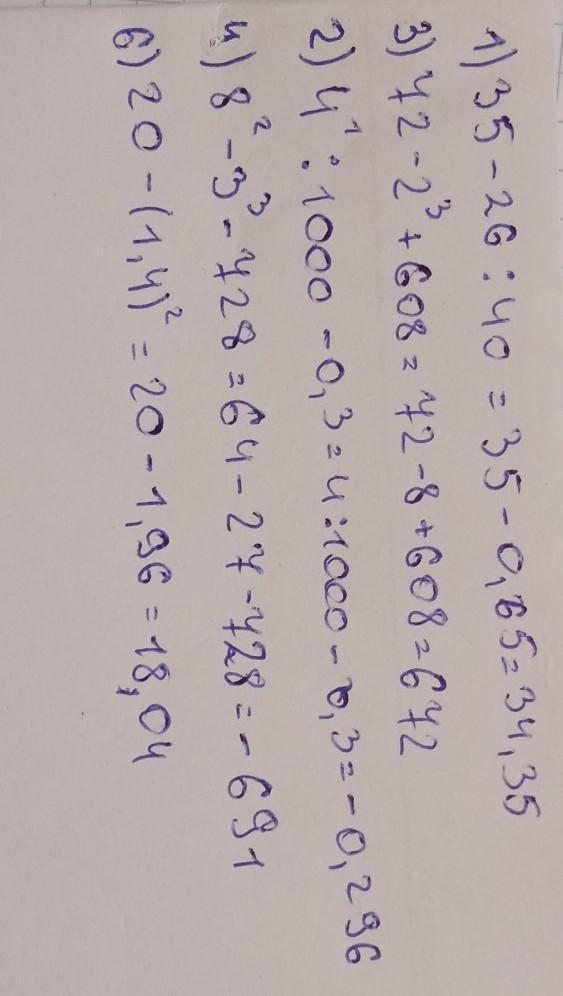 1) 35 - 26 : 40 = 35 - 0,65 = 34,35
3) 72 - 2³ + 608 = 72 - 8 + 608 = 672
2) 4¹ : 1000 - 0,3 = 4 : 1000 - 0,3 = - 0,296
4) 8² - 3³ - 728 = 64 - 27 - 728 = - 691
6) 20 - (1,4)² = 20 - 1,96 = 18,04